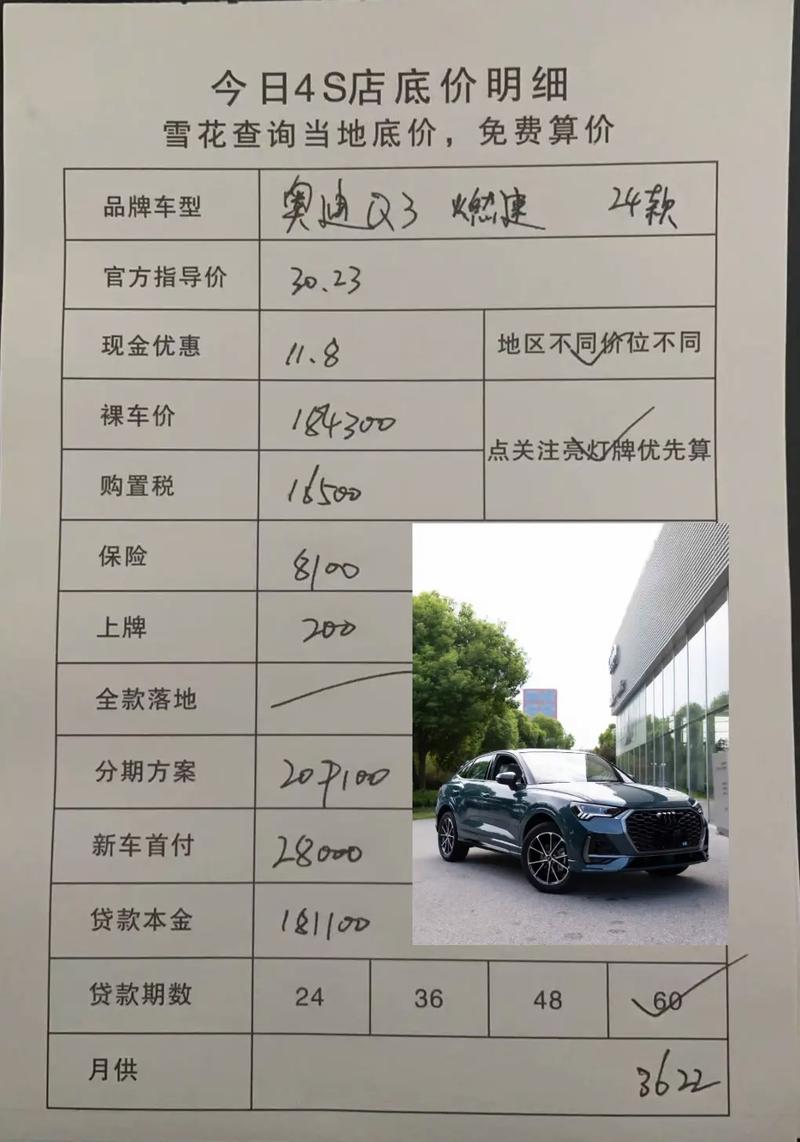 今日4S店底价明细
雪花查询当地底价，免费算价
品牌车型 奥迪Q3 燃速 24款
官方指导价 30.23
现金优惠 11.8 地区不同价位不同
裸车价 184300
点关注亮灯牌优先算
购置税 16500
保险 8100
上牌 200
全款落地
分期方案 209100
新车首付 28000
贷款本金 181100
贷款期数 24 36 48 60
月供 3622